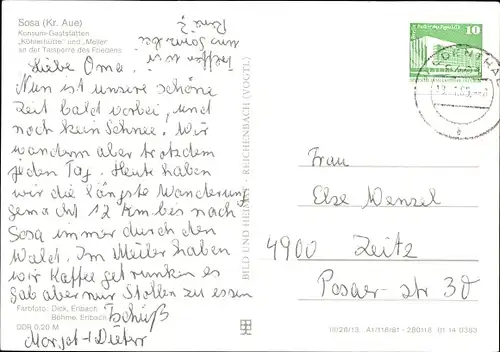 Sosa (Kr. Aue)
Konsum-Gaststätten
„Köhlerhütte" und „Meiler"
an der Talsperre des Friedens
Liebe Oma,
Nun ist unsere schöne
Zeit bald vorbei, und
noch kein Schnee. Wir
wandern aber trotzdem
jeden Tag. Heute haben
wir die längste Wanderung
gemacht 12 Km bis nach
Sosa immer durch den
Wald. Im Meiler haben
wir Kaffee getrunken es
gab aber nur Stollen zu essen
Tschüß
Margot + Dieter
Farbfoto: Dick, Erlbach
Böhme, Erlbach
DDR 0,20 M
BILD UND HEIMAT · REICHENBACH (VOGTL.)
10
Frau
Else Wenzel
4900 Zeitz
Posaer-str 30
III/26/13 A1/116/81 280118 01 14 0363